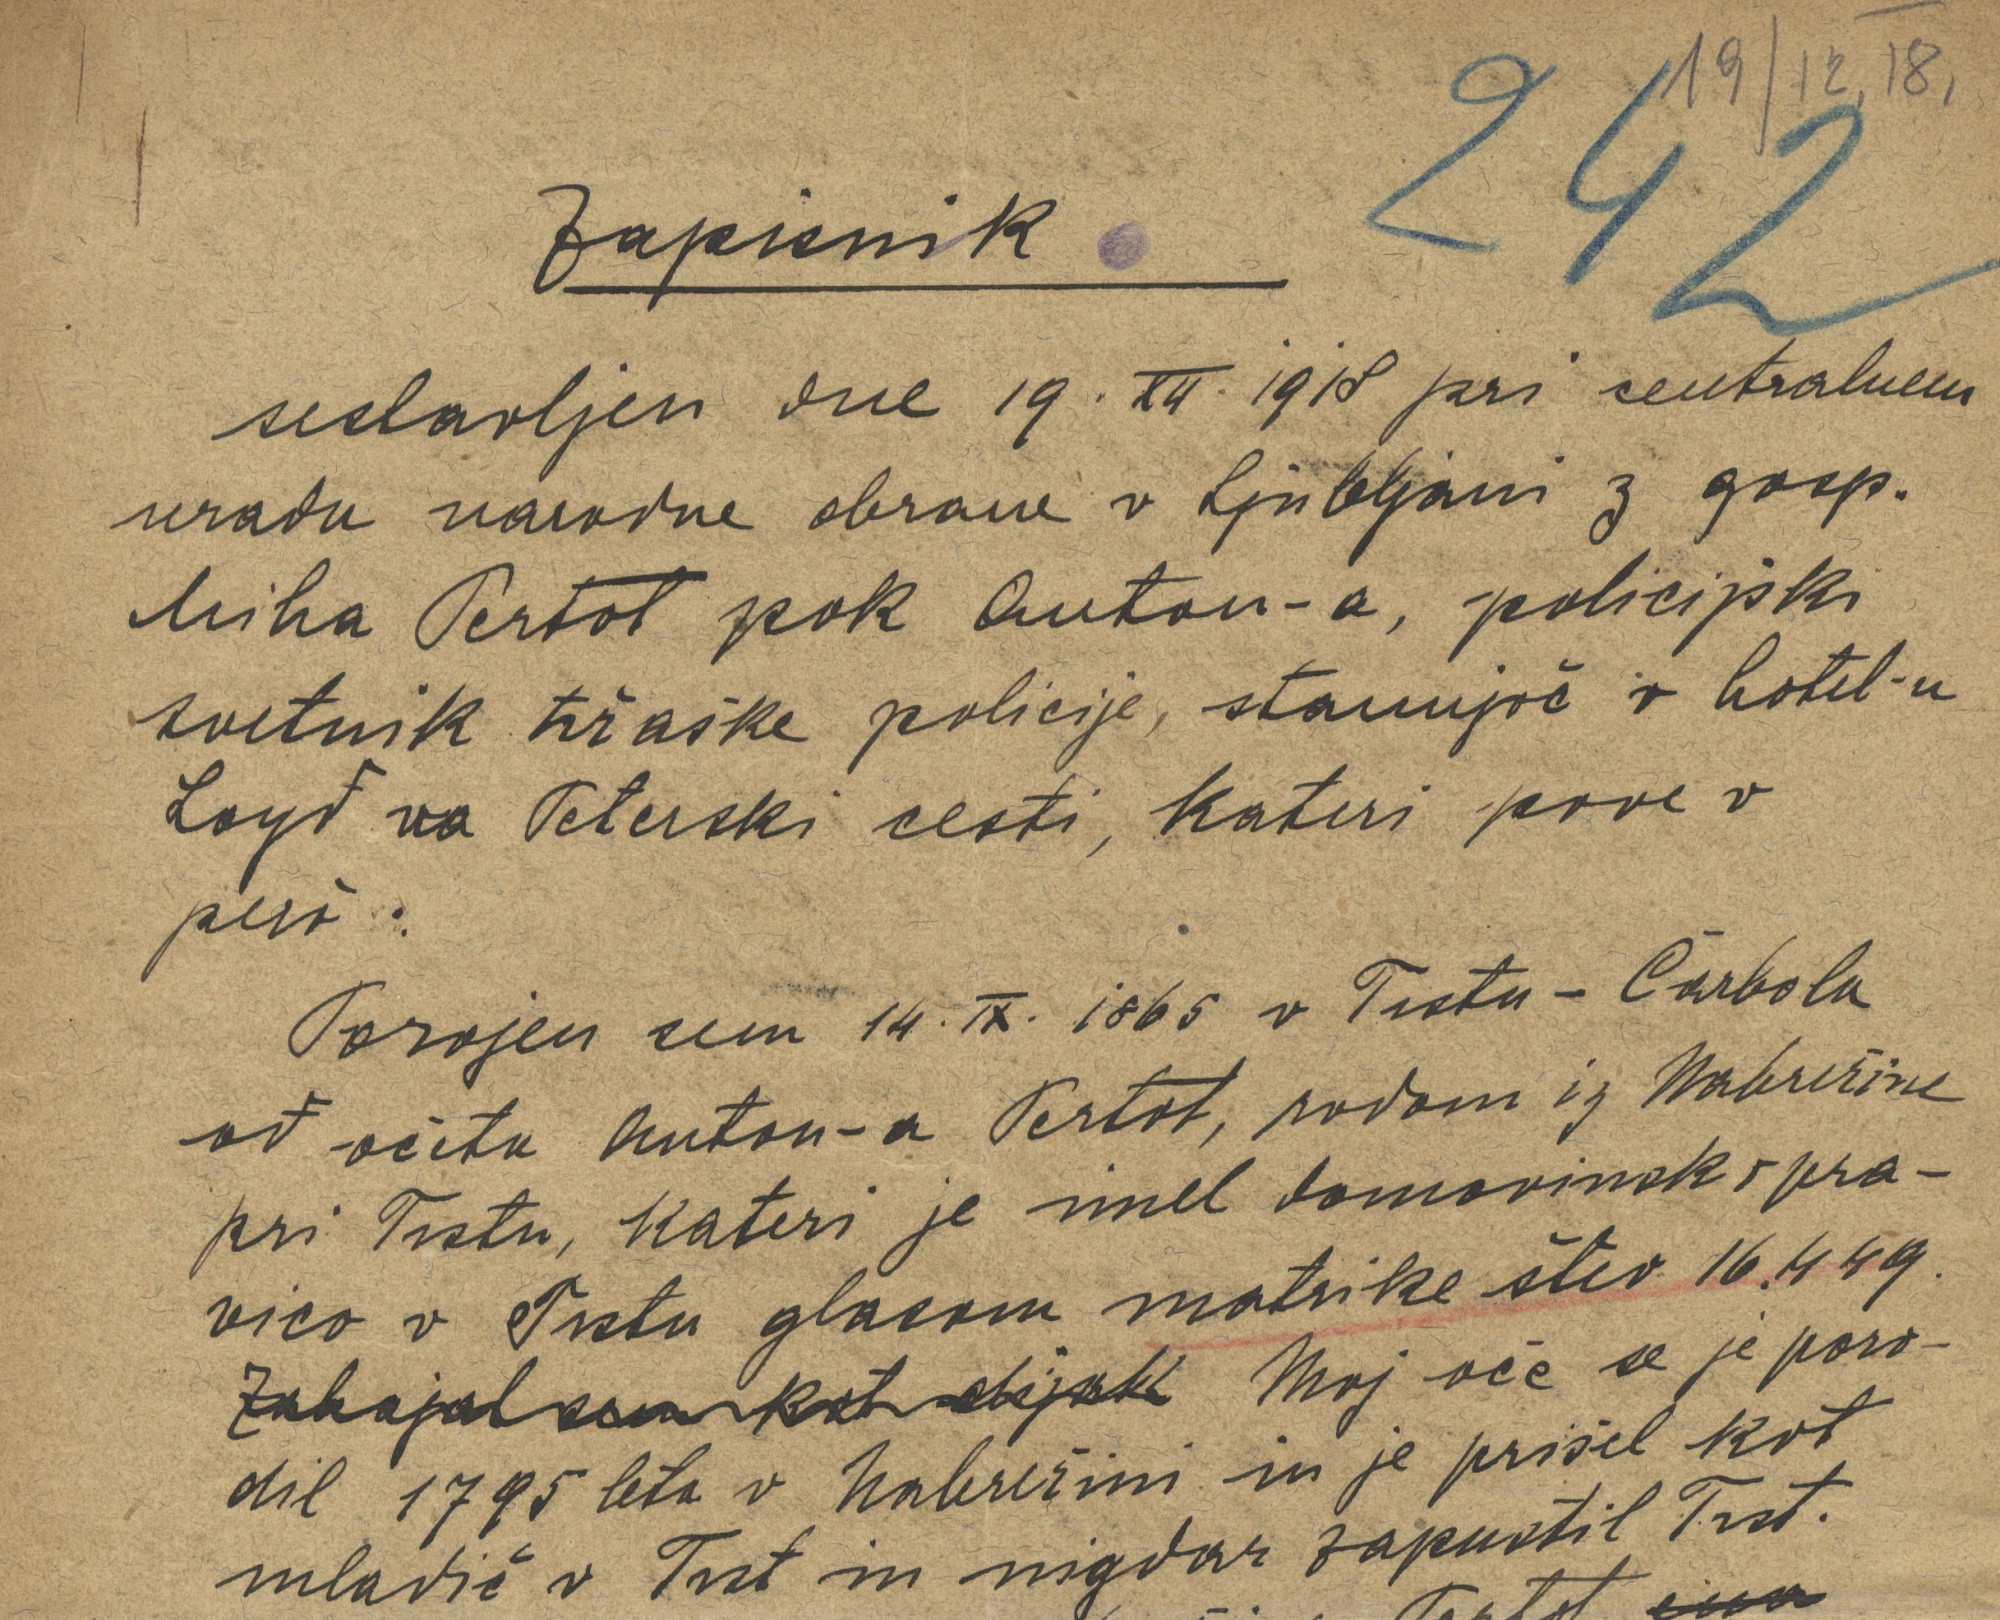 19/12, 18,
242
Zapisnik
sestavljen dne 19. XII. 1918 pri centralnem
uradu narodne obrane v Ljubljani z gosp.
Miha Pertot pok Anton-a, policijski
svetnik tržaške policije, stanujoč v hotel-u
Loyd na Peterski cesti, kateri pove v
però:
Porojen sem 14. IX. 1865 v Trstu - Čarbola
od očeta Anton-a Pertot, rodom iz Nabrežine
pri Trstu, kateri je imel domovinsko pra-
vico v Trstu glasom matrike štev 16.449.
Zahajal sem kot dijak Moj oče se je poro-
dil 1795 leta v Nabrežini in je prišel kot
mladič v Trst in nigdar zapustil Trst.
Pertot